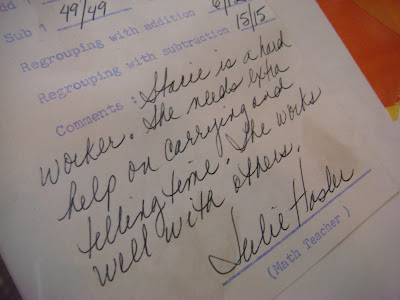 Sub 1 49/49
Regrouping with addition
Regrouping with subtraction 15/15
Comments: Stacie is a hard
worker. She needs extra
help on carrying and
telling time. She works
well with others.
Julie Hasler
(Math Teacher)